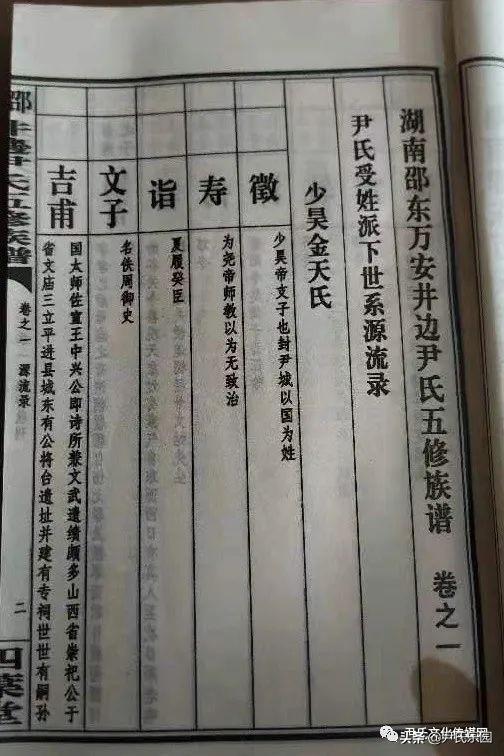 湖南邵东万安井边尹氏五修族谱 卷之一
尹氏受姓派下世系源流录
少昊金天氏
徵
少昊帝支子也封尹城以国为姓
寿
为尧帝师教以为无致治
诣
夏履癸臣
文子
名佚周御史
吉甫
国太师佐宣王中兴公即诗所兼文武遗绩颇多山西省崇祀公于
省文庙三立平进县城东有公将台遗址并建有专祠世世有嗣孙
氏五修族谱
卷之一
源流录
二
四
堂
头条 @尹氏乐园